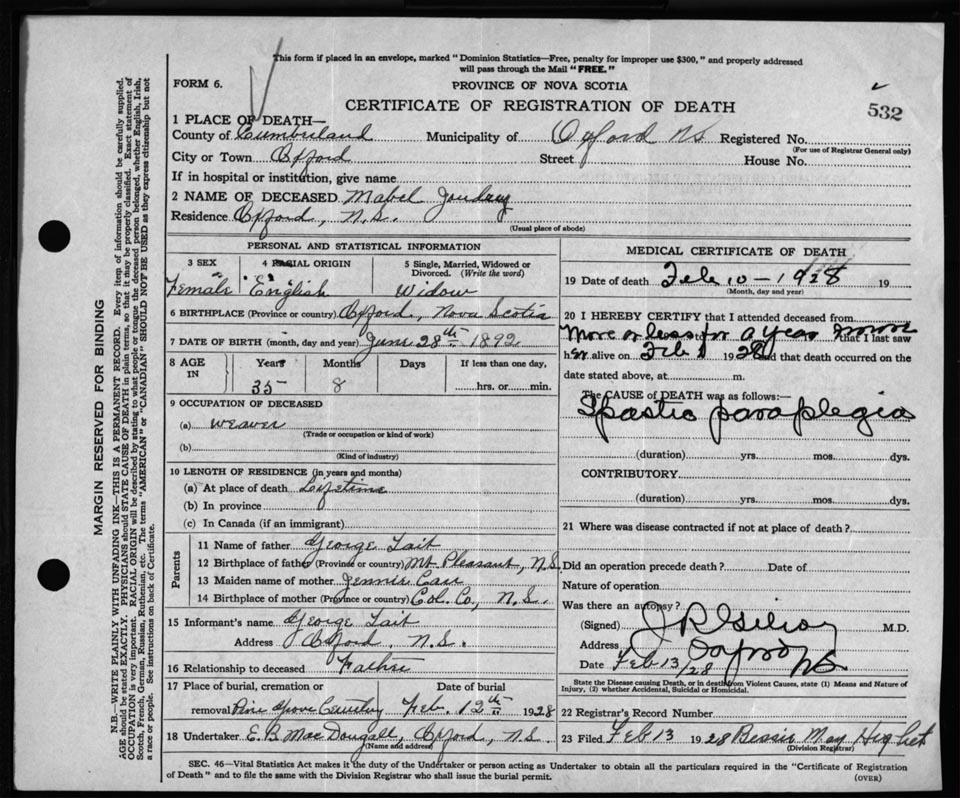 This form if placed in an envelope, marked "Dominion Statistics—Free, penalty for improper use $300," and properly addressed
will pass through the Mail "FREE."
FORM 6.
PROVINCE OF NOVA SCOTIA
CERTIFICATE OF REGISTRATION OF DEATH
532
1 PLACE OF DEATH—
County of Cumberland Municipality of Oxford NS Registered No.
(For use of Registrar General only)
City or Town Oxford Street House No.
If in hospital or institution, give name
2 NAME OF DECEASED Mabel
Residence Oxford, N.S.
(Usual place of abode)
MARGIN RESERVED FOR BINDING
N.B.—WRITE PLAINLY WITH UNFADING INK—THIS IS A PERMANENT RECORD. Every item of information should be carefully supplied.
AGE should be stated EXACTLY. PHYSICIANS should STATE CAUSE OF DEATH in plain terms, so that it may be properly classified. Exact statement of
OCCUPATION is very important. RACIAL ORIGIN will be described by stating to what people or tongue the deceased person belonged, whether English, Irish,
Scotch, French, German, Russian, Ruthenian, etc. The terms "AMERICAN" or "CANADIAN" SHOULD NOT BE USED as they express citizenship but not
a race or people. See instructions on back of Certificate.
PERSONAL AND STATISTICAL INFORMATION
3 SEX
4 RACIAL ORIGIN
5 Single, Married, Widowed or
Divorced. (Write the word)
Female English Widow
6 BIRTHPLACE (Province or country) Oxford, Nova Scotia
7 DATE OF BIRTH (month, day and year) June 28th 1892
8 AGE
IN
Years Months Days If less than one day,
35 8 hrs. or min.
9 OCCUPATION OF DECEASED
(a) weaver
(Trade or occupation or kind of work)
(b)
(Kind of industry)
10 LENGTH OF RESIDENCE (in years and months)
(a) At place of death Lifetime
(b) In province
(c) In Canada (if an immigrant)
Parents
11 Name of father George Tait
12 Birthplace of father (Province or country) Mt Pleasant, N.S.
13 Maiden name of mother Jennie
14 Birthplace of mother (Province or country) Col. Co., N.S.
15 Informant's name George Tait
Address Oxford N.S.
16 Relationship to deceased Father
17 Place of burial, cremation or Date of burial
removal Pine Grove Cemetery Feb. 12th 1928
18 Undertaker E.B. MacDougall, Oxford, N.S.
(Name and address)
MEDICAL CERTIFICATE OF DEATH
19 Date of death Feb 10-1928 19
(Month, day and year)
20 I HEREBY CERTIFY that I attended deceased from
More or less for a year that I last saw
her alive on Feb 1928 and that death occurred on the
date stated above, at m.
The CAUSE of DEATH was as follows:—
Spastic paraplegia
(duration) yrs. mos. dys.
CONTRIBUTORY
(duration) yrs. mos. dys.
21 Where was disease contracted if not at place of death?
Did an operation precede death? Date of
Nature of operation
Was there an autopsy?
(Signed) M.D.
Address Oxford NS
Date Feb 13/28
State the Disease causing Death, or in deaths from Violent Causes, state (1) Means and Nature of
Injury, (2) whether Accidental, Suicidal or Homicidal.
22 Registrar's Record Number
23 Filed Feb 13 1928 Bessie May
(Division Registrar)
SEC. 46—Vital Statistics Act makes it the duty of the Undertaker or person acting as Undertaker to obtain all the particulars required in the "Certificate of Registration
of Death" and to file the same with the Division Registrar who shall issue the burial permit.
(OVER)